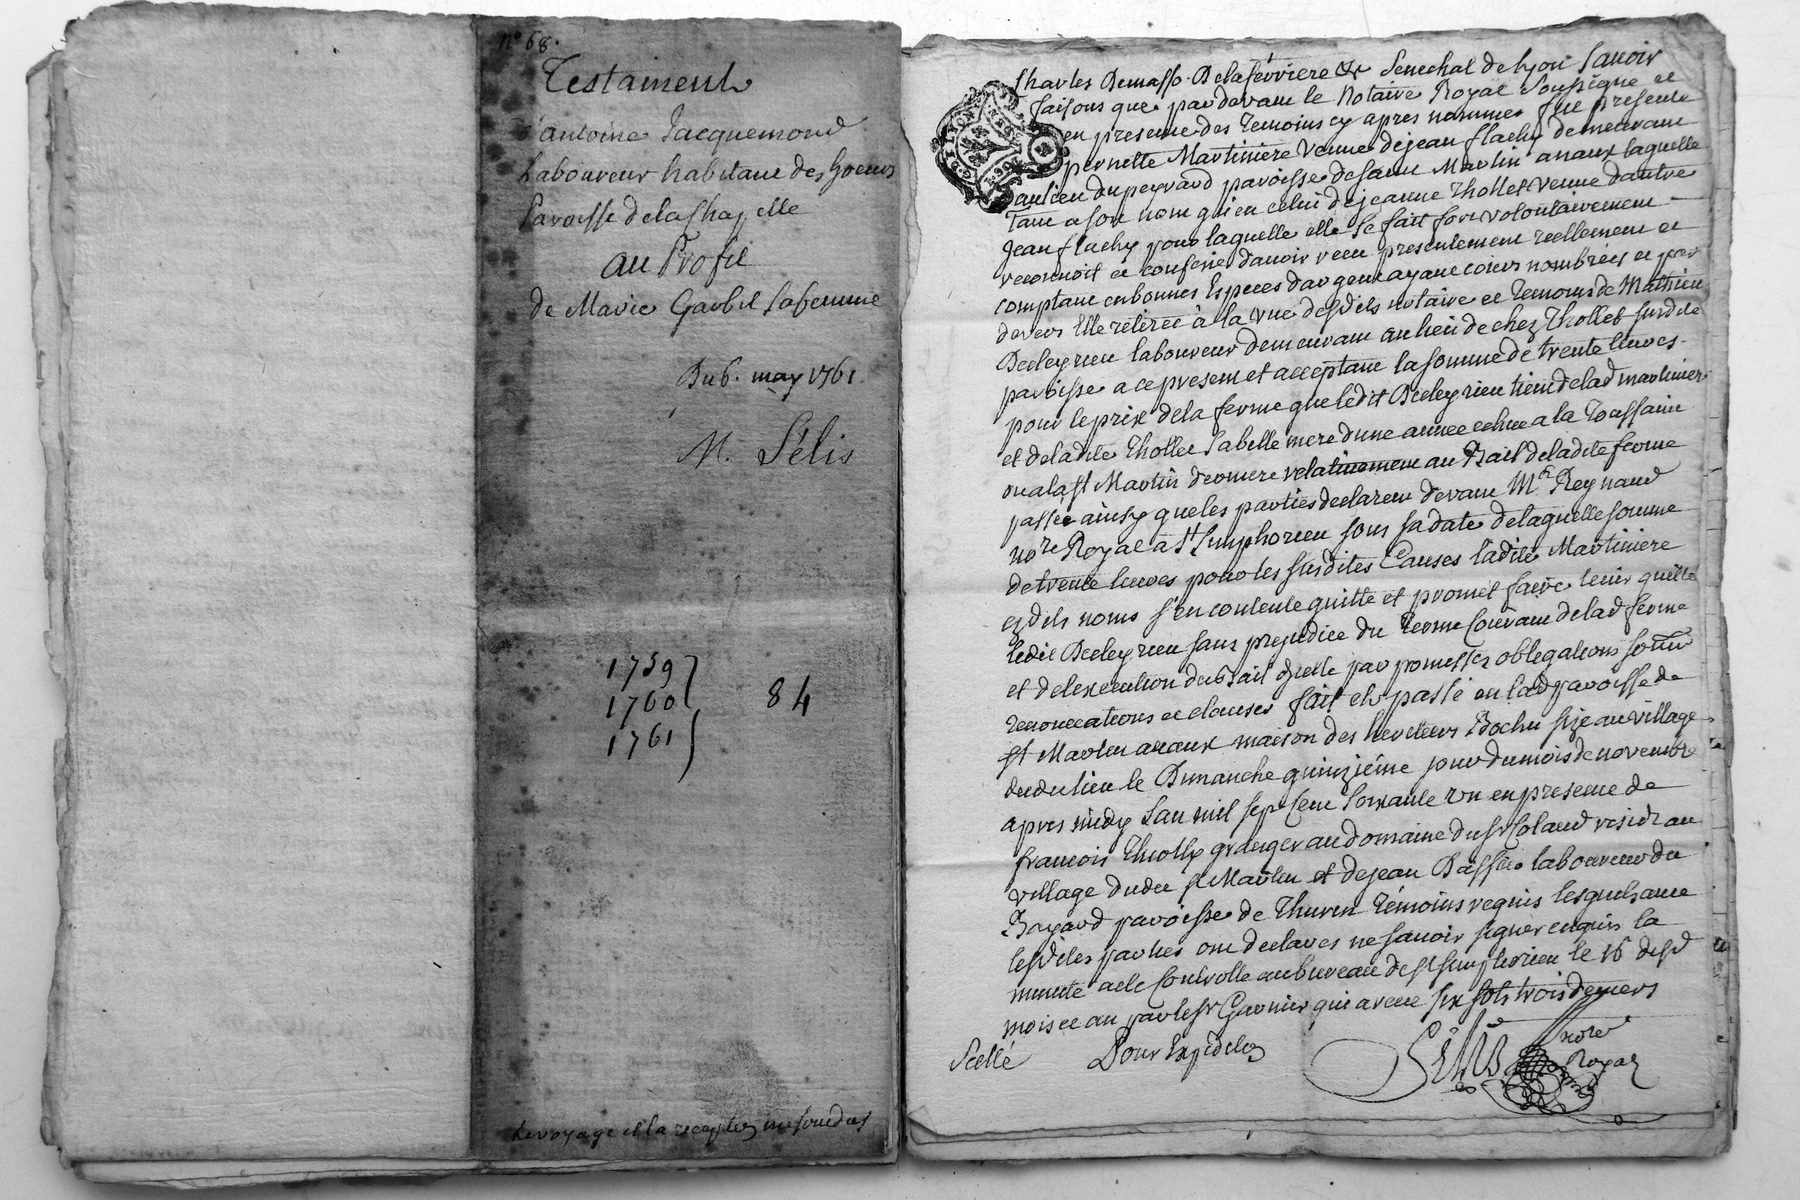 n° 68.
Testament
d'antoine Jacquemond
Laboureur habitant des
Paroisse delaChapelle
au Profit
de Marie Garbil sa femme
Du 6. may 1761
M. Sélis
1759
1760
1761
84
Le voyage et la recepte me sont dus
Charles Demasso Delaferriere &c Senechal de Lyon Savoir
faisons que par devant le Notaire Royal Soussigne et
en presence des temoins cy apres nommes fut presente
pernette Martiniere veuve de jean flachy demeurant
au lieu du peyrard paroisse de saint Martin anaux laquelle
tant a son nom qu'en celui de jeanne Thollet veuve d'autre
Jean flachy pour laquelle elle se fait fort volontairement
reconnoit et confesse d'avoir receu presentement reellement et
comptant en bonnes Especes d'argent ayant cours nombrées et par
devers Elle retirée à la vue desdits notaire et temoins de Mathieu
Deleyrieu laboureur demeurant au lieu de chez Thollet susdite
paroisse a ce present et acceptant la somme de trente livres
pour le prix de la ferme que ledit Deleyrieu tient de lad martiniere
et deladite Thollet sa belle mere d'une année echue a la Toussaint
ou a la st Martin derniere relativement au Bail de ladite ferme
passée ainsy que les parties declarent devant Mr Reynaud
nore Royal a st Simphorien sous sa date de laquelle somme
de trente livres pour les susdites Causes ladite Martiniere
esdits noms s'en contente quitte et promet faire tenir quitte
ledit Deleyrieu sans prejudice du terme courant de lad ferme
et de l'execution du Bail d'icelle par promesses obligations soum
renonciations et clauses fait et passé en lad paroisse de
st Martin anaux maison des heritiers Bochu size au village
dudit lieu le Dimanche quinzième jour du mois de novembre
apres midy l'an mil sept Cent soixante un en presence de
francois Thiolly granger au domaine du sr Coland resident au
village dudit st Martin et de jean Basset laboureur du
Bayard paroisse de Thurin temoins requis lesquels avec
lesdites parties ont declarés ne savoir signer enquis la
minute a ete Controlle au bureau de st simphorien le 16 desd
mois et an par le sr Garnier qui a receu six sols trois deniers
Scellé
Pour Expedition
Sélis nore
Royal